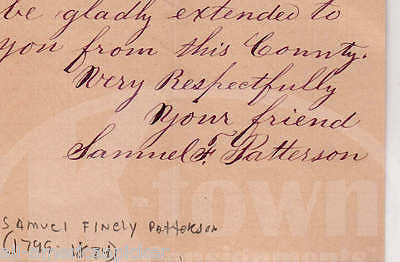 be gladly extended to
you from this County.
Very Respectfully
Your friend
Samuel F. Patterson
SAMUEL FINELY Patterson
(1799-1874)
town